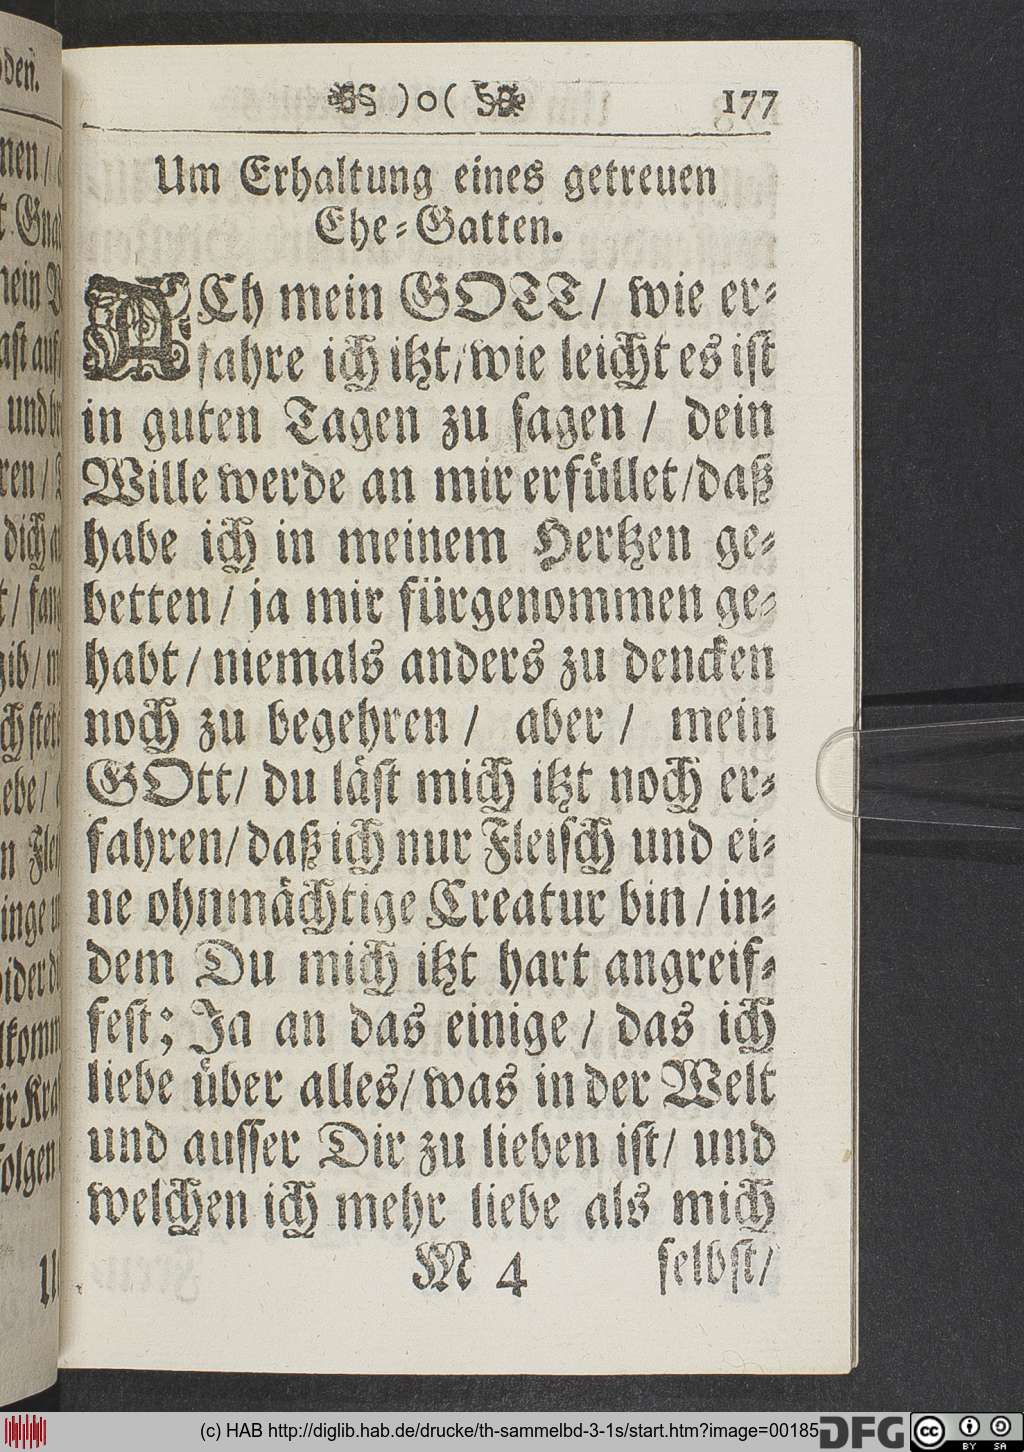 )o( 177
Um Erhaltung eines getreuen
Ehe-Gatten.
ACh mein GOTT/ wie er-
fahre ich itzt/wie leicht es ist
in guten Tagen zu sagen/ dein
Wille werde an mir erfüllet/daß
habe ich in meinem Hertzen ge-
betten/ ja mir fürgenommen ge-
habt/ niemals anders zu dencken
noch zu begehren/ aber/ mein
GOtt/ du läst mich itzt noch er-
fahren/daß ich nur Fleisch und ei-
ne ohnmächtige Creatur bin/in-
dem Du mich itzt hart angreif-
fest; Ja an das einige/ das ich
liebe über alles/was in der Welt
und ausser Dir zu lieben ist/ und
welchen ich mehr liebe als mich
M 4 selbst/
(c) HAB http://diglib.hab.de/drucke/th-sammelbd-3-1s/start.htm?image=00185
DFG
cc BY SA